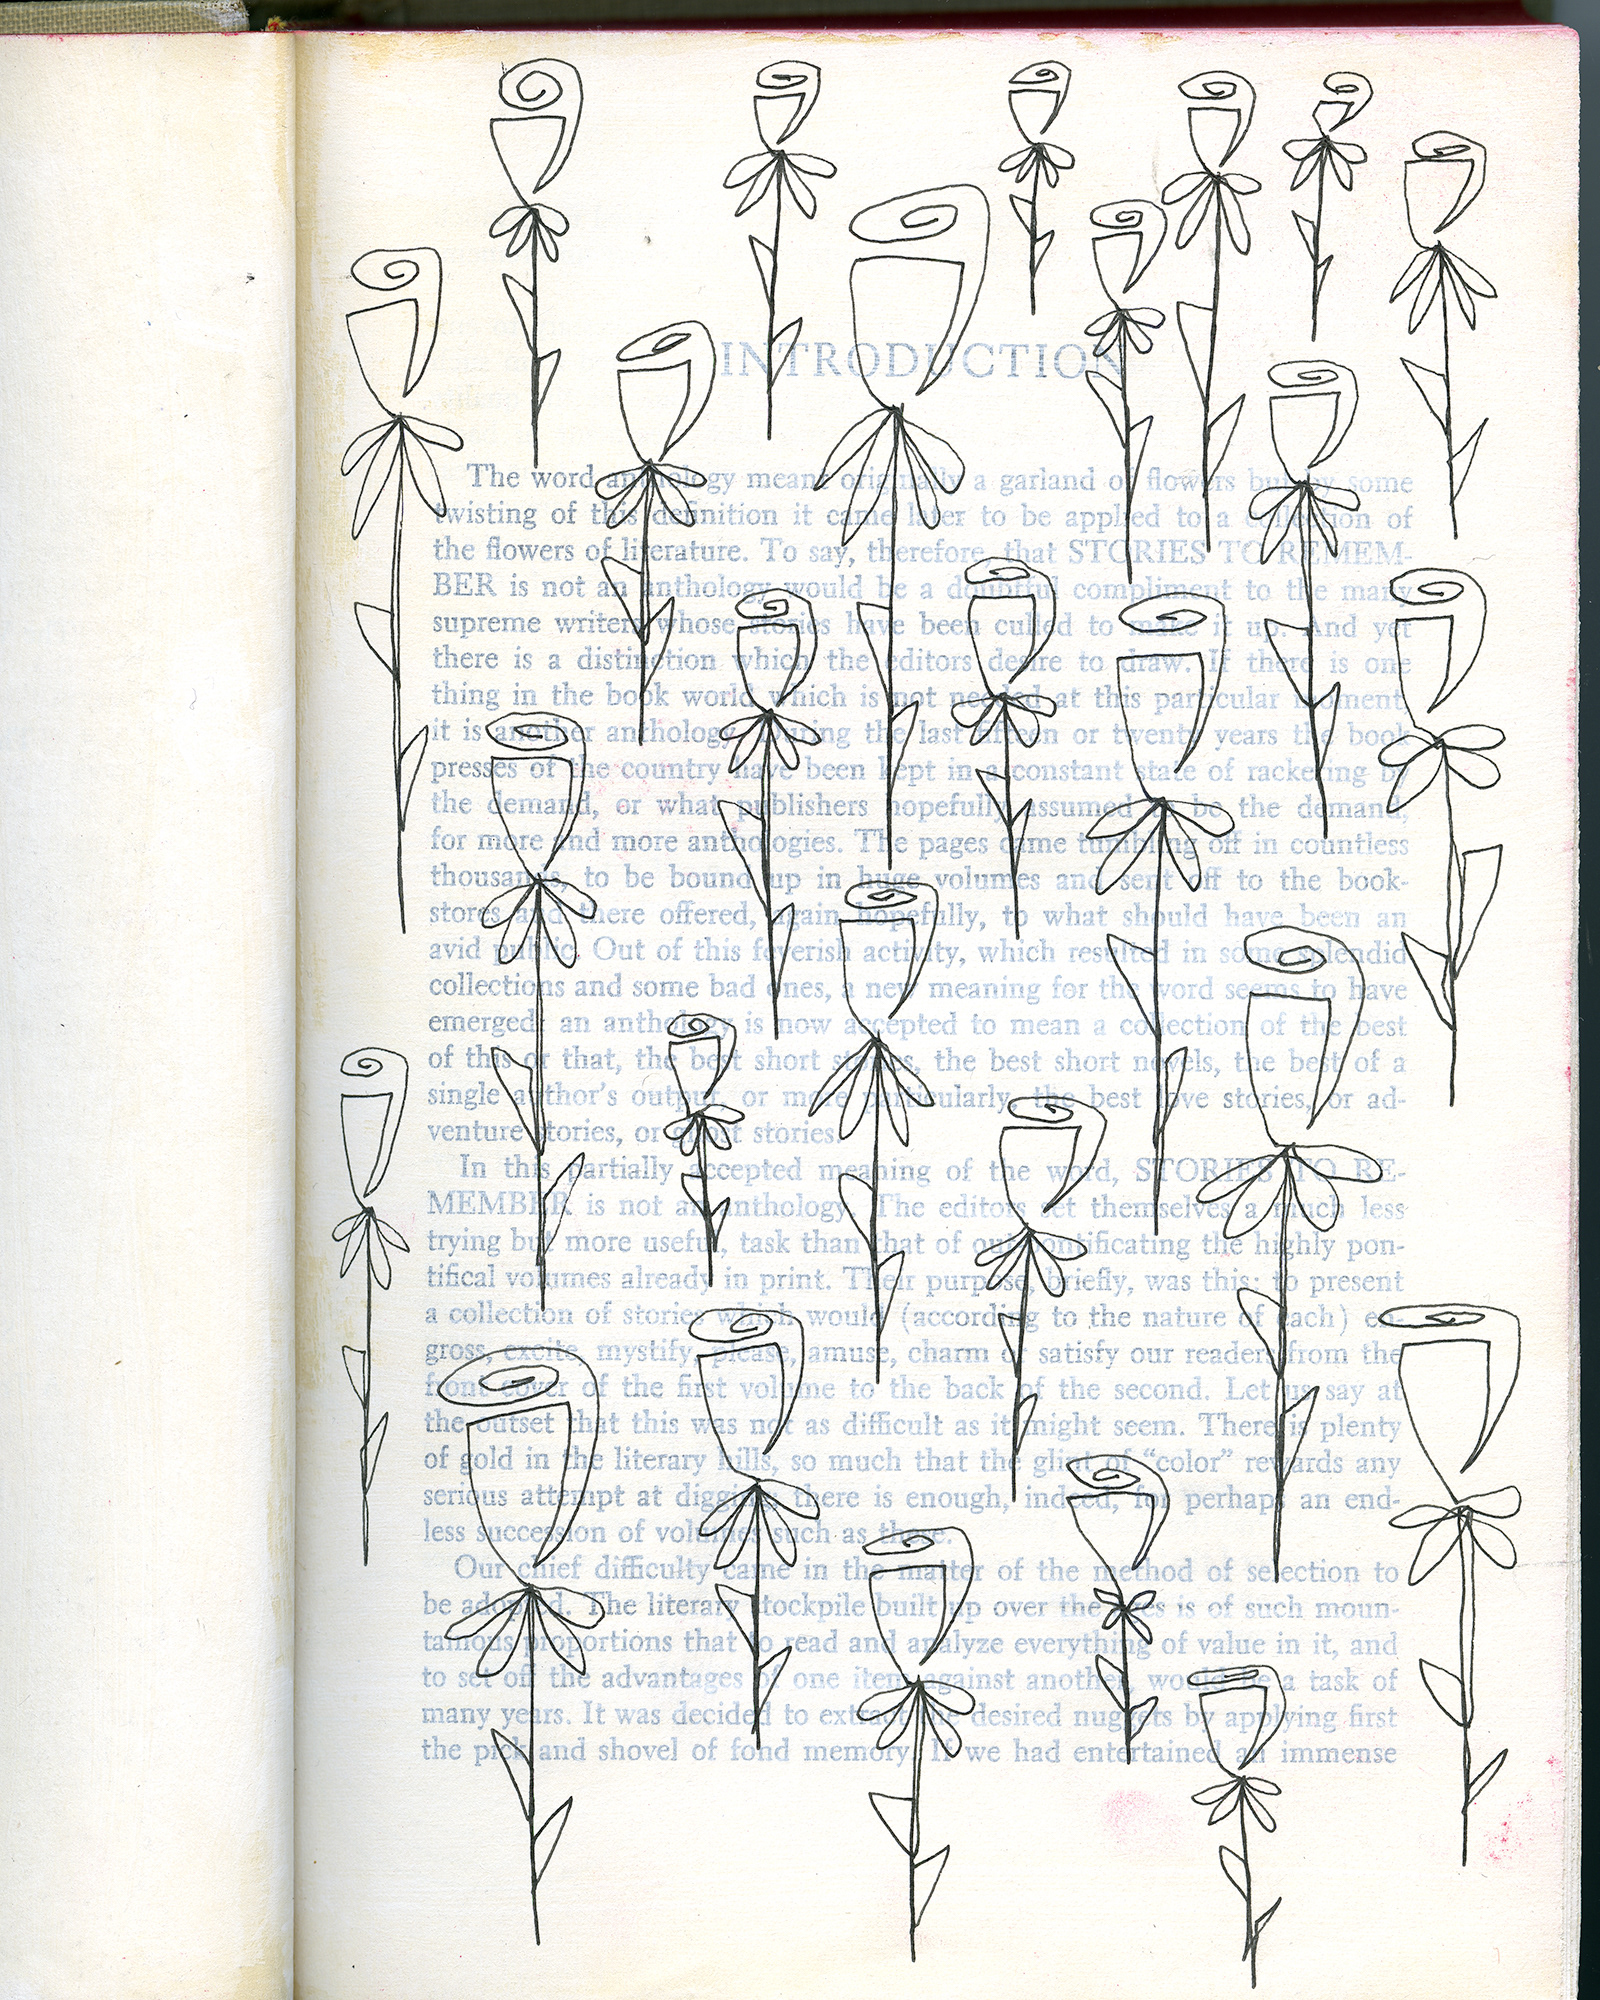 INTRODUCTION
The word anthology meant originally a garland of flowers but by some
twisting of this definition it came later to be applied to a collection of
the flowers of literature. To say, therefore, that STORIES TO REMEM-
BER is not an anthology would be a doubtful compliment to the many
supreme writers whose stories have been culled to make it up. And yet
there is a distinction which the editors desire to draw. If there is one
thing in the book world which is not needed at this particular moment,
it is another anthology. During the last fifteen or twenty years the book
presses of the country have been kept in a constant state of racketing by
the demand, or what publishers hopefully assumed to be the demand,
for more and more anthologies. The pages came tumbling off in countless
thousands, to be bound up in huge volumes and sent off to the book-
stores and there offered, again hopefully, to what should have been an
avid public. Out of this feverish activity, which resulted in some splendid
collections and some bad ones, a new meaning for the word seems to have
emerged: an anthology is now accepted to mean a collection of the best
of this or that, the best short stories, the best short novels, the best of a
single author's output, or more particularly, the best love stories, or ad-
venture stories, or ghost stories.
In this partially accepted meaning of the word, STORIES TO RE-
MEMBER is not an anthology. The editors set themselves a much less
trying but more useful, task than that of outpontificating the highly pon-
tifical volumes already in print. Their purpose, briefly, was this: to present
a collection of stories which would (according to the nature of each) en-
gross, excite, mystify, please, amuse, charm or satisfy our readers from the
front cover of the first volume to the back of the second. Let us say at
the outset that this was not as difficult as it might seem. There is plenty
of gold in the literary hills, so much that the glint of “color” rewards any
serious attempt at digging; there is enough, indeed, for perhaps an end-
less succession of volumes such as these.
Our chief difficulty came in the matter of the method of selection to
be adopted. The literary stockpile built up over the ages is of such moun-
tainous proportions that to read and analyze everything of value in it, and
to set off the advantages of one item against another, would be a task of
many years. It was decided to extract the desired nuggets by applying first
the pick and shovel of fond memory. If we had entertained an immense